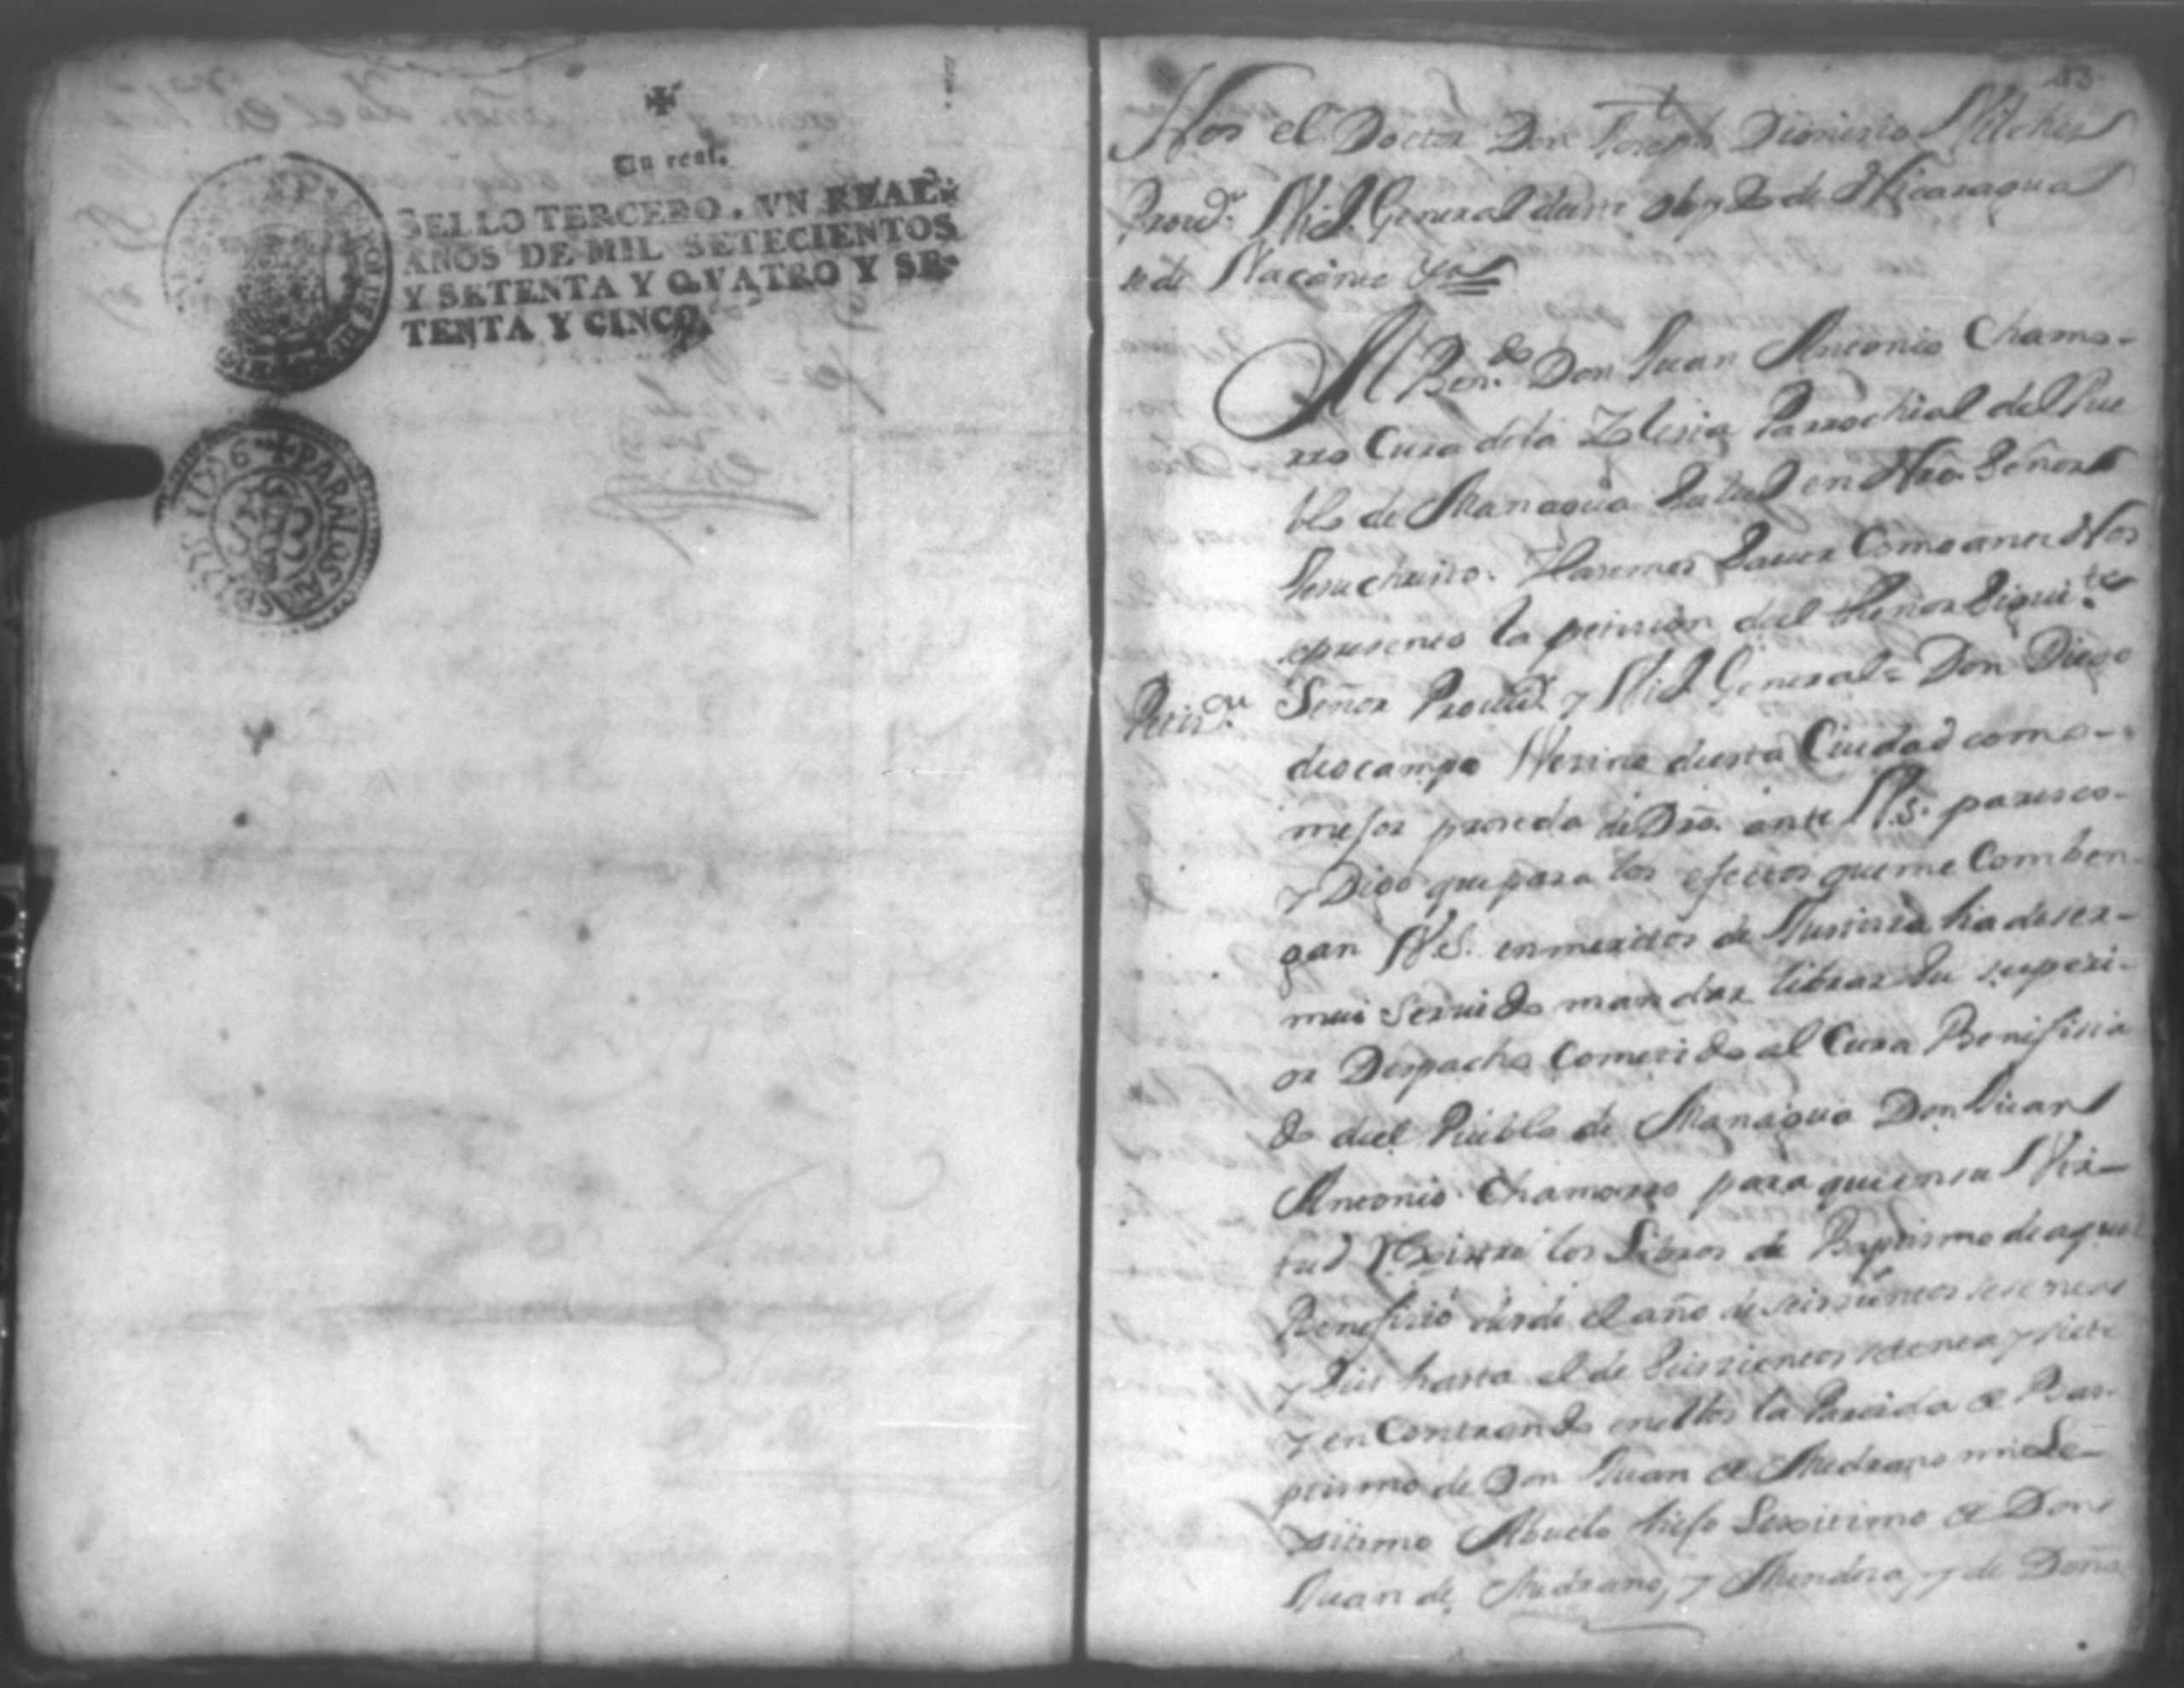 Un real.
SELLO TERCERO, VN REAL;
AÑOS DE MIL SETECIENTOS
Y SETENTA Y QVATRO Y SE-
TENTA Y CINCO.
1776 PARA LOS AÑOS DE
43
Nos el Doctor Don Joseph Dionisio Vilches
Provd.r Vic. General deeste obpdo de Nicaragua
sede Vacante &a
Al Bendo Don Juan Antonio Chamo-
rro Cura dela Iglesia Parrochial del Pue
blo de Managua Salud en Nro. Señor
Jesuchristo. Hasemos Saver Como ante Nos
sepresento la petision del thenor Siguite
Petisn. Señor Provisr. y Vic. General = Don Diego
deocampo Vesino deesta Ciudad como-
mejor proseda de Dro. ante V.S. paresco-
y Digo quepara los efectos queme Comben-
gan V.S. enmeritos de Justisia ha deser-
mui Servido mandar librar Su superi-
or Despacho Cometido al Cura Benefisia
do del Pueblo de Managua Don Juan
Antonio Chamorro para queensu Vir-
tud los Libros de Baptismo de aquel
Benefisio desde el año de seissientos sesenta
y Seis hasta el de Seissientos setenta y siete
y en Contrando enellos la Partida de Bau-
ptismo de Don Juan de Medrano mi Le-
gitimo Abuelo hijo Lexitimo de Don
Juan de Medrano, y Mendosa, y de Doña